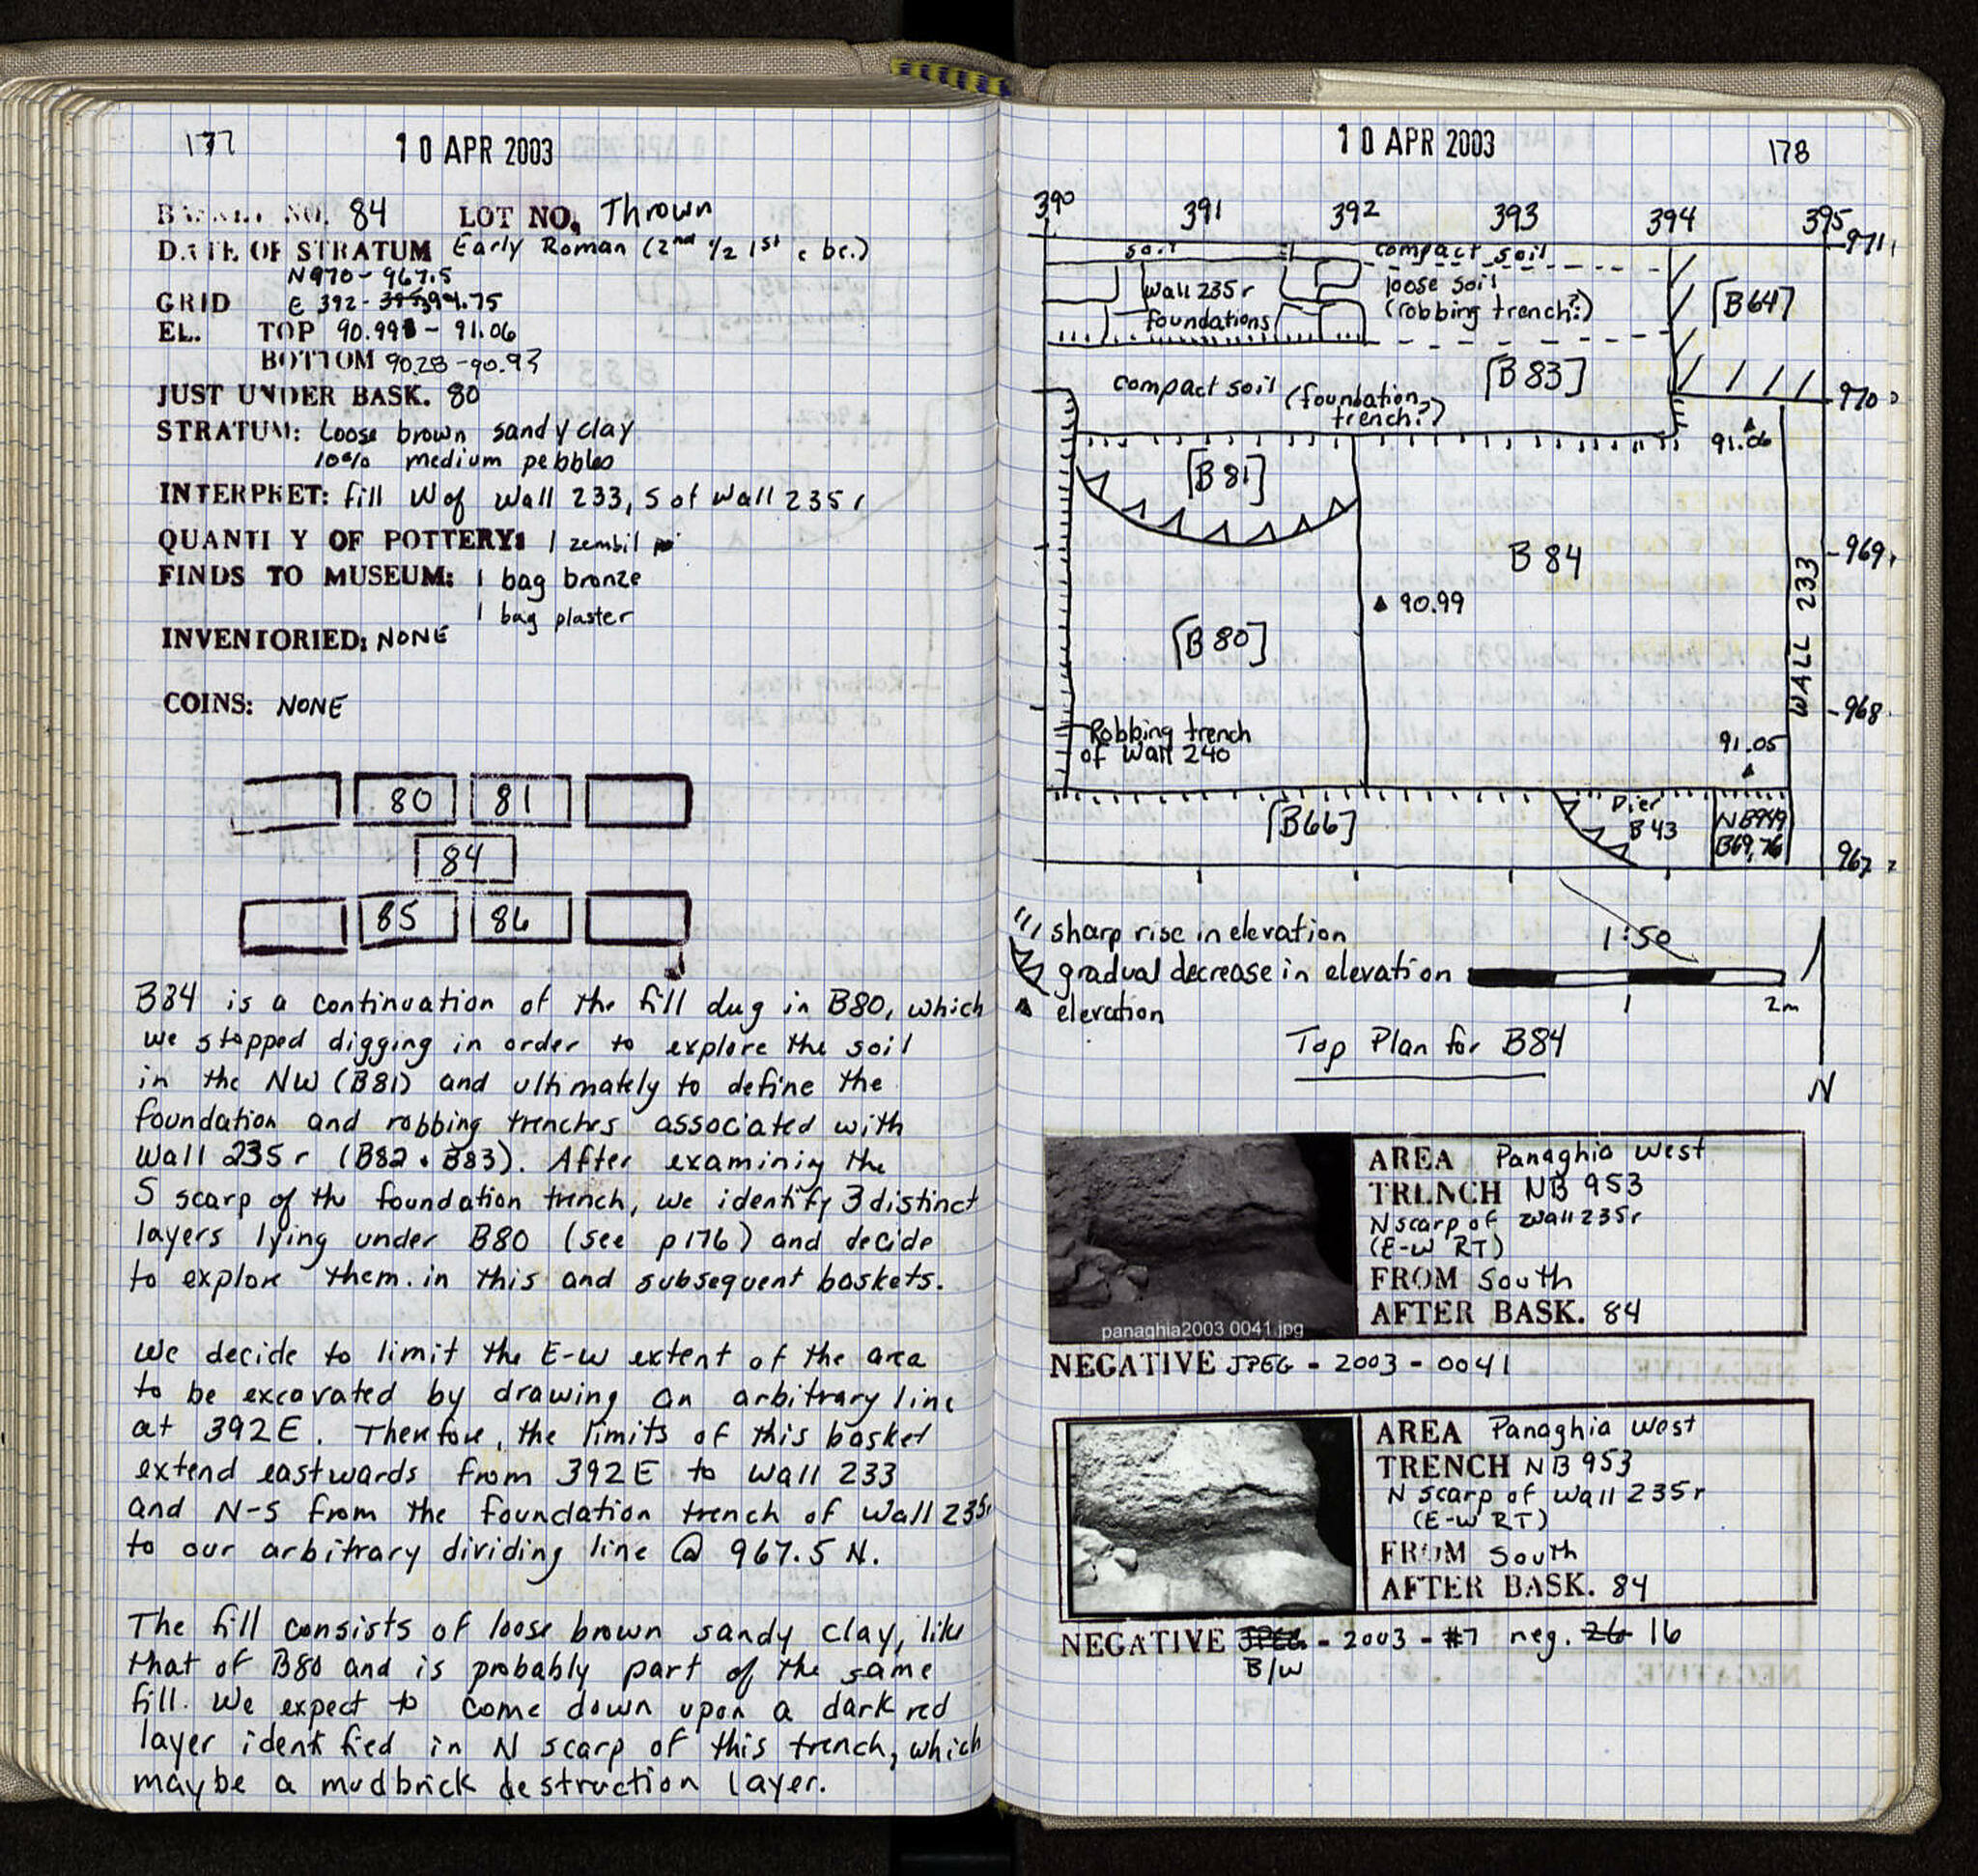 177
10 APR 2003
BASKET NO. 84 LOT NO. Thrown
DATE OF STRATUM Early Roman (2nd 1/2 1st c bc.)
N970-967.5
GRID E 392-394.75
EL. TOP 90.99 - 91.06
BOTTOM 90.28-90.93
JUST UNDER BASK. 80
STRATUM: Loose brown sandy clay
10% medium pebbles
INTERPRET: fill W of wall 233, S of wall 235 r
QUANTITY OF POTTERY: 1 zembil
FINDS TO MUSEUM: 1 bag bronze
1 bag plaster
INVENTORIED: NONE
COINS: NONE
80 81
84
85 86
B84 is a continuation of the fill dug in B80, which
we stopped digging in order to explore the soil
in the NW (B81) and ultimately to define the
foundation and robbing trenches associated with
wall 235 r (B82 + B83). After examining the
S scarp of the foundation trench, we identify 3 distinct
layers lying under B80 (see p176) and decide
to explore them in this and subsequent baskets.
We decide to limit the E-W extent of the area
to be excavated by drawing an arbitrary line
at 392E. Therefore, the limits of this basket
extend eastwards from 392E to wall 233
and N-S from the foundation trench of wall 235r
to our arbitrary dividing line @ 967.5 N.
The fill consists of loose brown sandy clay, like
that of B80 and is probably part of the same
fill. We expect to come down upon a dark red
layer identified in N scarp of this trench, which
maybe a mudbrick destruction layer.
10 APR 2003
178
390 391 392 393 394 395
971
soil compact soil
wall 235 r
foundations
loose soil
(robbing trench?)
[B64]
[B83]
compact soil (foundation
trench?)
970
91.06
[B81]
B 84
969
WALL 233
90.99
[B80]
968
Robbing trench
of wall 240
91.05
[B66]
Pier
B 43
NB949
B69, 76
967
sharp rise in elevation
1:50
gradual decrease in elevation
1 2m
elevation
Top Plan for B84
N
AREA Panaghia West
TRENCH NB 953
N scarp of wall 235r
(E-W RT)
FROM South
AFTER BASK. 84
panaghia2003 0041.jpg
NEGATIVE JPEG - 2003 - 0041
AREA Panaghia West
TRENCH NB 953
N scarp of wall 235 r
(E-W RT)
FROM South
AFTER BASK. 84
NEGATIVE JPEG - 2003 - #7 neg. 26 16
B/W